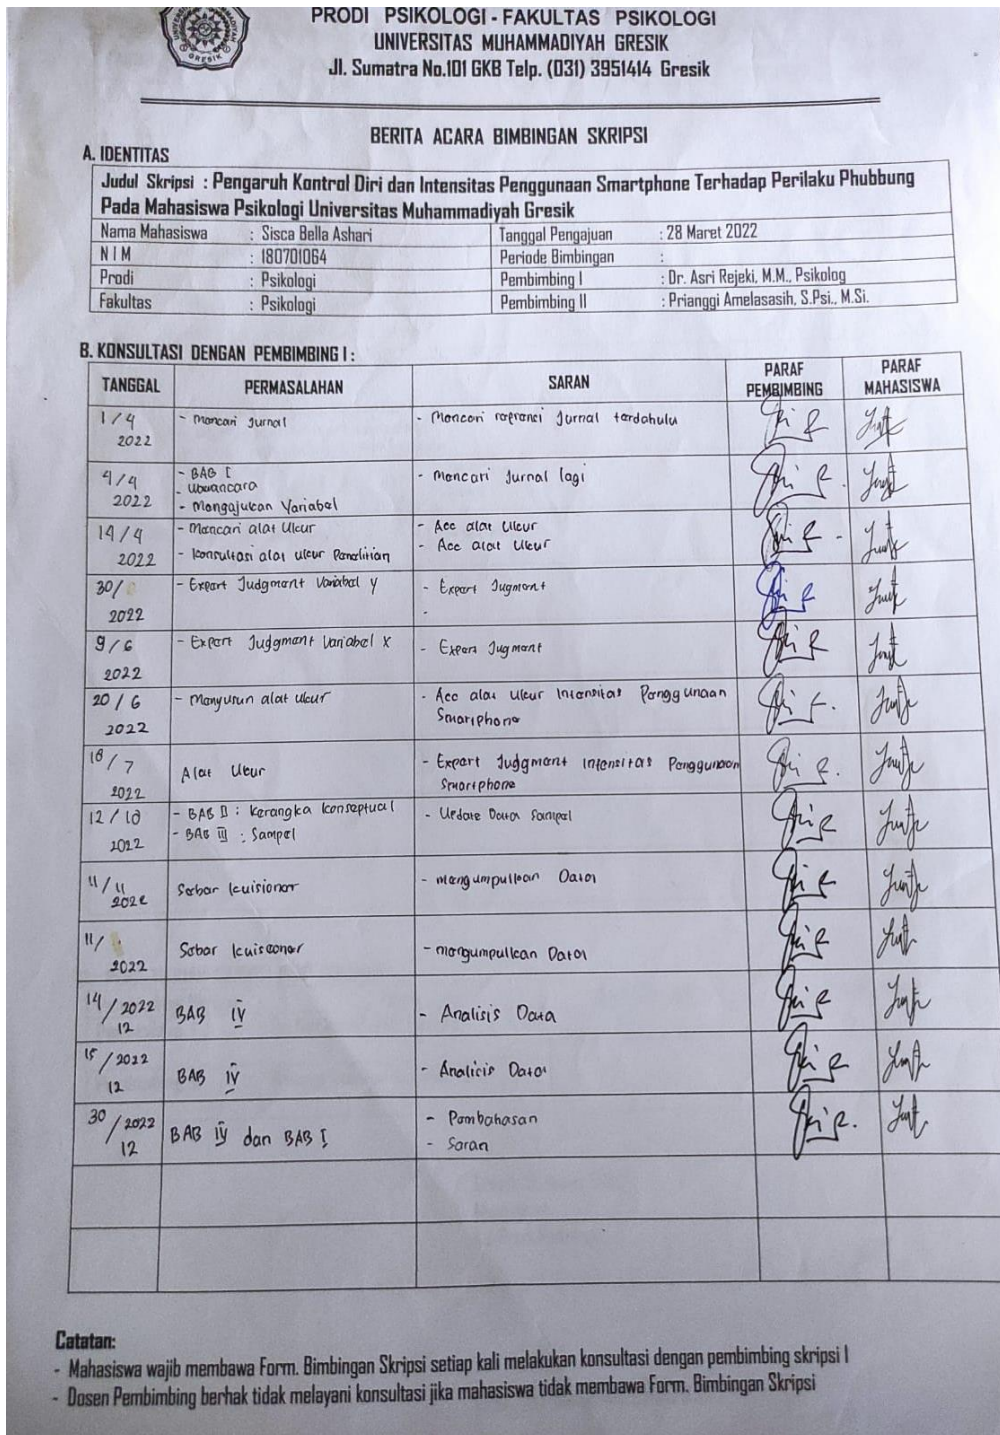 PRODI PSIKOLOGI - FAKULTAS PSIKOLOGI
UNIVERSITAS MUHAMMADIYAH GRESIK
Jl. Sumatra No.101 GKB Telp. (031) 3951414 Gresik
BERITA ACARA BIMBINGAN SKRIPSI
A. IDENTITAS
Judul Skripsi : Pengaruh Kontrol Diri dan Intensitas Penggunaan Smartphone Terhadap Perilaku Phubbung
Pada Mahasiswa Psikologi Universitas Muhammadiyah Gresik
Nama Mahasiswa : Sisca Bella Ashari Tanggal Pengajuan : 28 Maret 2022
N I M : 180701064 Periode Bimbingan :
Prodi : Psikologi Pembimbing I : Dr. Asri Rejeki, M.M., Psikolog
Fakultas : Psikologi Pembimbing II : Prianggi Amelasasih, S.Psi., M.Si.
B. KONSULTASI DENGAN PEMBIMBING I :
TANGGAL PERMASALAHAN SARAN PARAF PEMBIMBING PARAF MAHASISWA
1/4 2022 - Mencari Jurnal - Mencari refrensi Jurnal terdahulu
4/4 2022 - BAB I - Mencari Jurnal lagi
- Wawancara
- Mengajukan Variabel
14/4 2022 - Mencari alat Ukur - Acc alat Ukur
- Konsultasi alat ukur Penelitian - Acc alat Ukur
30/ 2022 - Expert Judgment Variabel Y - Expert Jugment
-
9/6 2022 - Expert Judgment Variabel X - Expert Jugment
20/6 2022 - Menyusun alat ukur - Acc alat Ukur Intensitas Penggunaan
Smartphone
18/7 2022 Alat Ukur - Expert Judgment Intensitas Penggunaan
Smartphone
12/10 2022 - BAB II : Kerangka Konseptual - Update Data Sampel
- BAB III : Sampel
11/11 2022 Sebar kuisioner - mengumpulkan Data
11/ 2022 Sebar kuiseoner - mengumpulkan Data
14/2022 12 BAB IV - Analisis Data
15/2022 12 BAB IV - Analisis Data
30/2022 12 BAB IV dan BAB I - Pembahasan
- Saran
Catatan:
- Mahasiswa wajib membawa Form. Bimbingan Skripsi setiap kali melakukan konsultasi dengan pembimbing skripsi I
- Dosen Pembimbing berhak tidak melayani konsultasi jika mahasiswa tidak membawa Form. Bimbingan Skripsi